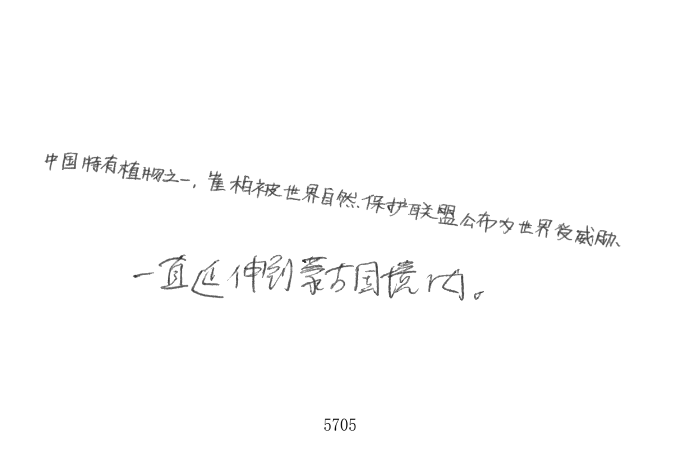 中国特有植物之一，崖柏被世界自然保护联盟公布为世界受威胁、
一直延伸到蒙古国境内。
5705